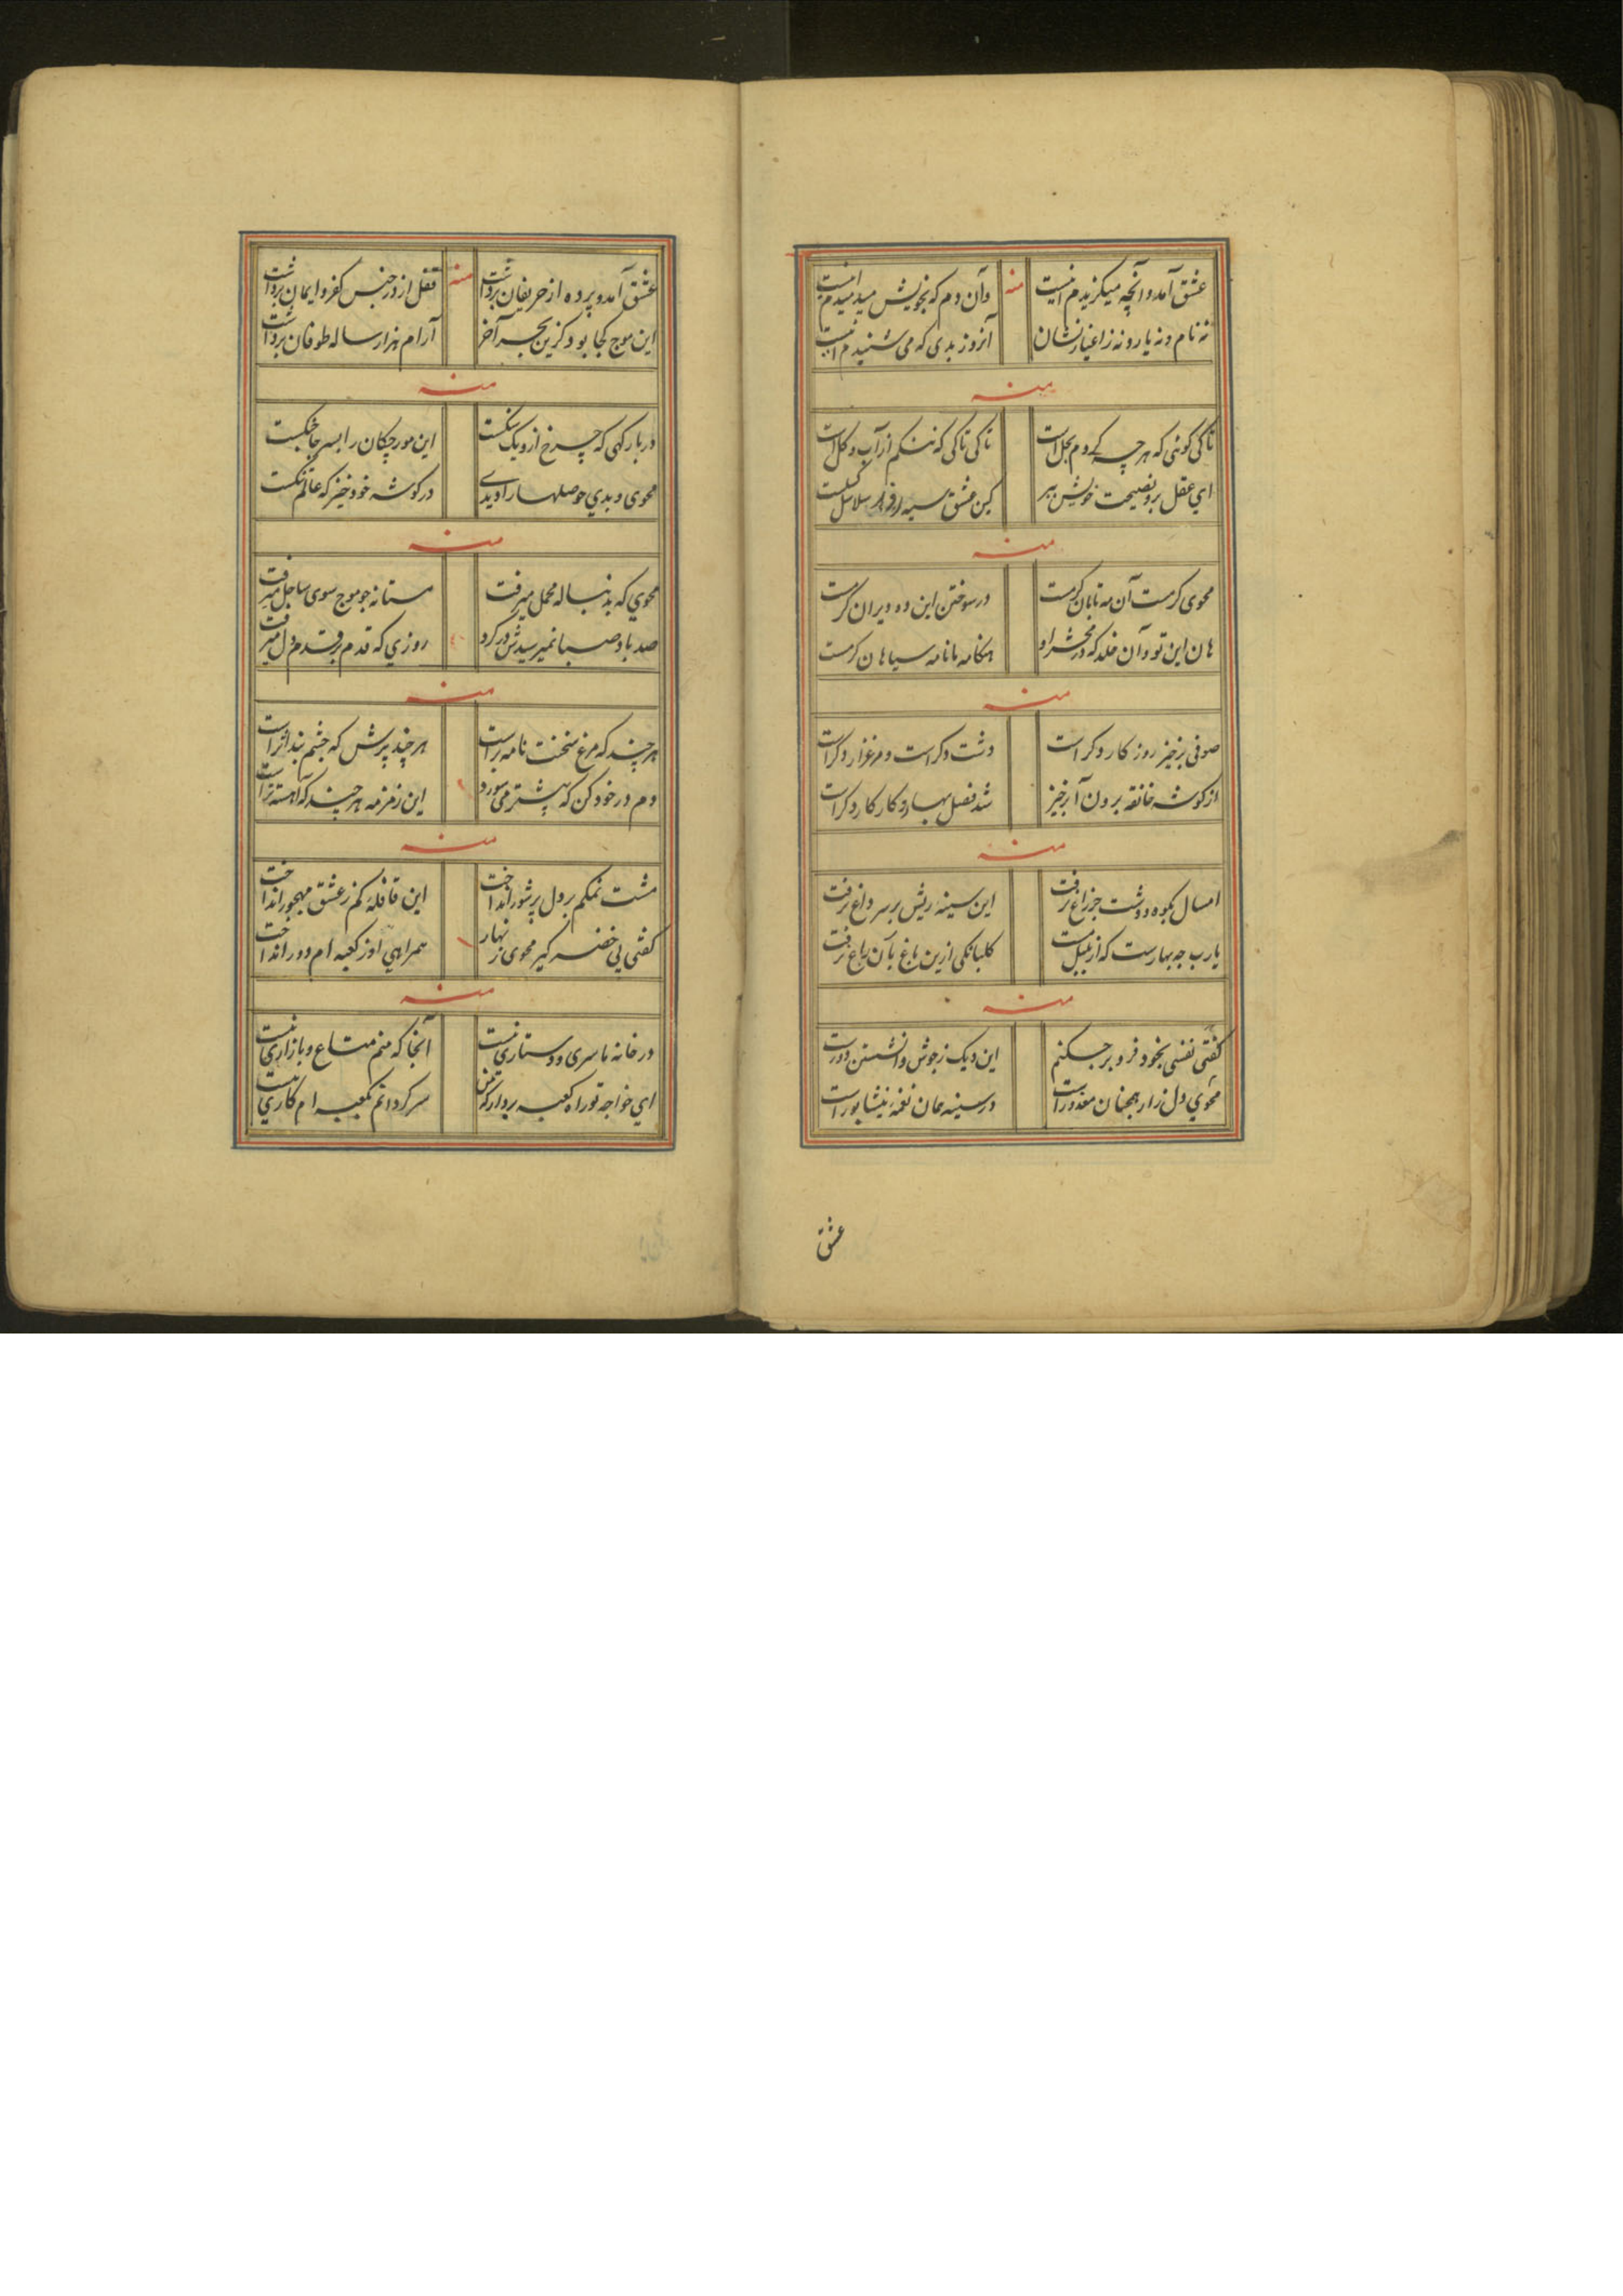 عشق آمد و آنچه میکزیدم اینست
منه
وآن دم که بخویش میدمیدم اینست
نه نام و نه یار و نه ز اغیار نشان
آنروز بدی که می شنیدم اینست
منه
تا کی کوئی که هر چه کردم بحل است
تا کی تا کی که ننکم از آب و کل است
ای عقل برو نصیحت خویش ببر
کین عشق سیه سلاسل کسلست
منه
محوی کرمست آن مه تابان کرمست
در سوختن این ده ویران کرمست
هان این تو و آن خلد که در محشر او
هنکامه ما نامه سیاهان کرمست
منه
صوفی برخیز روز کار دکر است
دشت دکر است و مرغزار دکر است
از کوشه خانقه برون آ برخیز
شد فصل بهار و کار کار دکر است
منه
امسال بکوه و دشت جز راغ نرفت
این سینه ریش بر سر داغ نرفت
یارب چه بهارست که از بلبل مست
کلبانکی ازین باغ بآن راغ نرفت
منه
کفتی نفسی بخود فرو بر چکنم
این دیک ز جوش وانشستن دورست
محوی دل زار همچنان معذور است
در سینه همان نغمه نیشابور است
عشق
عشق آمد و پرده از حریفان برداشت
منه
قفل از در جنس کفر و ایمان برداشت
این موج کجا بود کزین بحر آخر
آرام هزار ساله طوفان برداشت
منه
در بارکهی که چرخ ازو یک شکست
این مورچکان را بسر جا جنکست
محوی دیدی حوصلها را دیدی
در کوشه خود خیز که عالم تنکست
منه
محوی که بدنباله محمل میرفت
مستانه چو موج سوی ساحل میرفت
صد باد صبا نمیرسیدش در کرد
روزی که قدم بر قدم دل میرفت
منه
هر چند که مرغ سخنت نامه بر است
هر چند پرش که چشم بند اثر است
دم در خود کن که بیشتر می سوزد
این زمزمه هر چند که آهسته تر است
منه
مشت نمکم بر دل پر شور انداخت
این قافله کم ز عشق مهجور انداخت
کفتی پی خضر کیر محوی زنهار
همراهی او ز کعبه ام دور انداخت
منه
در خانه ما سری و دستاری نیست
آنجا که منم متاع و بازاری نیست
ای خواجه تو راه کعبه بردار که من
سرکردانم بکعبه ام کاری نیست